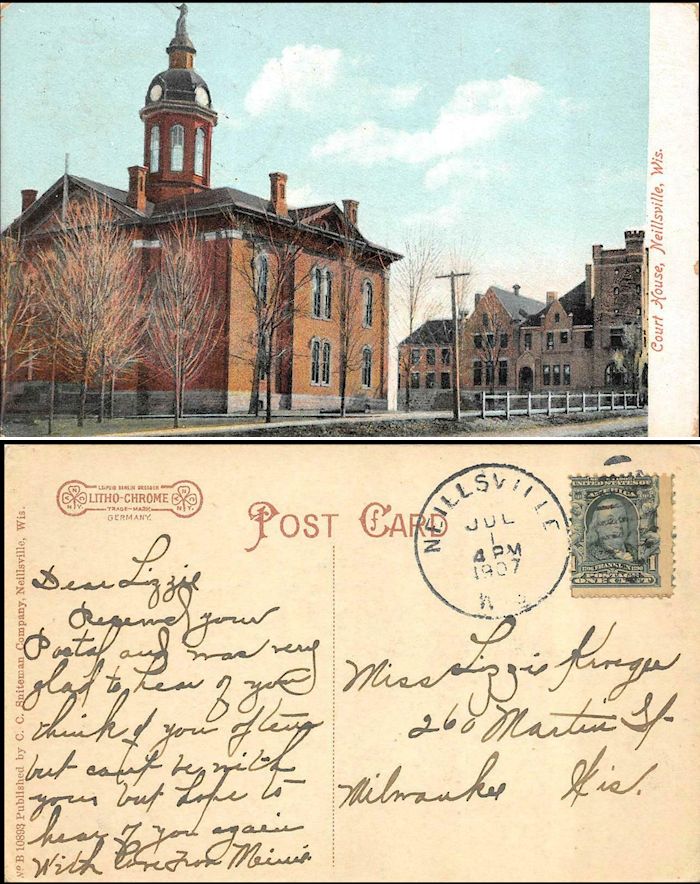 Court House, Neillsville, Wis.
No B 10893 Published by C. C. Sniteman Company, Neillsville, Wis.
LEIPZIG BERLIN DRESDEN
LITHO-CHROME
TRADE-MARK
GERMANY.
N C N Y
N C N Y
POST CARD
NEILLSVILLE
JUL
1
4 PM
1907
WIS
UNITED STATES OF
AMERICA
1706 FRANKLIN 1790
POSTAGE
1 ONE CENT 1
Dear Lizzie
Received your
Postal and was very
glad to hear of you
think of you often
but can't be with
your but hope to
hear of you again
With Love From Minnie
Miss Lizzie Krueger
260 Martin St
Milwaukee Wis.